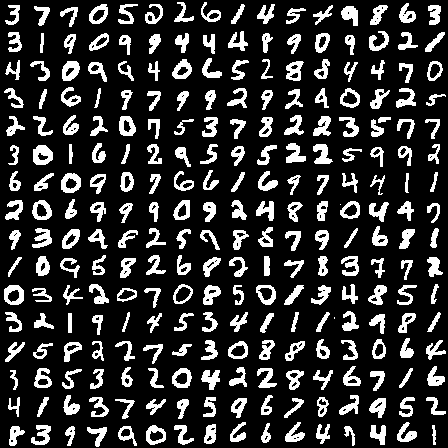 3 7 7 0 5 2 2 6 1 4 5 4 9 8 6 3
3 1 9 0 9 9 4 4 4 8 9 0 9 0 2 1
4 3 0 9 9 4 0 6 5 2 8 8 4 4 7 0
3 1 6 1 9 7 9 9 2 9 2 9 0 8 2 5
2 2 6 2 0 7 5 3 7 8 2 2 3 5 7 7
3 0 1 6 1 2 9 5 9 5 2 2 5 9 9 2
6 6 0 9 0 7 6 6 1 6 9 7 4 4 1 1
2 0 6 9 9 9 0 9 2 4 8 8 0 4 4 7
9 3 0 4 8 2 5 9 8 8 7 9 1 6 8 1
1 0 9 5 8 2 6 8 2 1 7 8 3 7 7 8
0 3 4 2 0 7 0 8 5 0 1 3 4 8 5 1
3 2 1 9 1 4 5 3 4 1 1 1 2 9 8 1
4 5 8 2 2 7 5 3 0 8 8 6 3 0 6 4
3 8 5 3 6 2 0 4 2 2 8 4 6 7 1 6
4 1 6 3 7 4 9 5 9 6 7 8 2 9 5 2
8 3 9 7 9 0 2 8 6 1 6 4 9 4 6 1